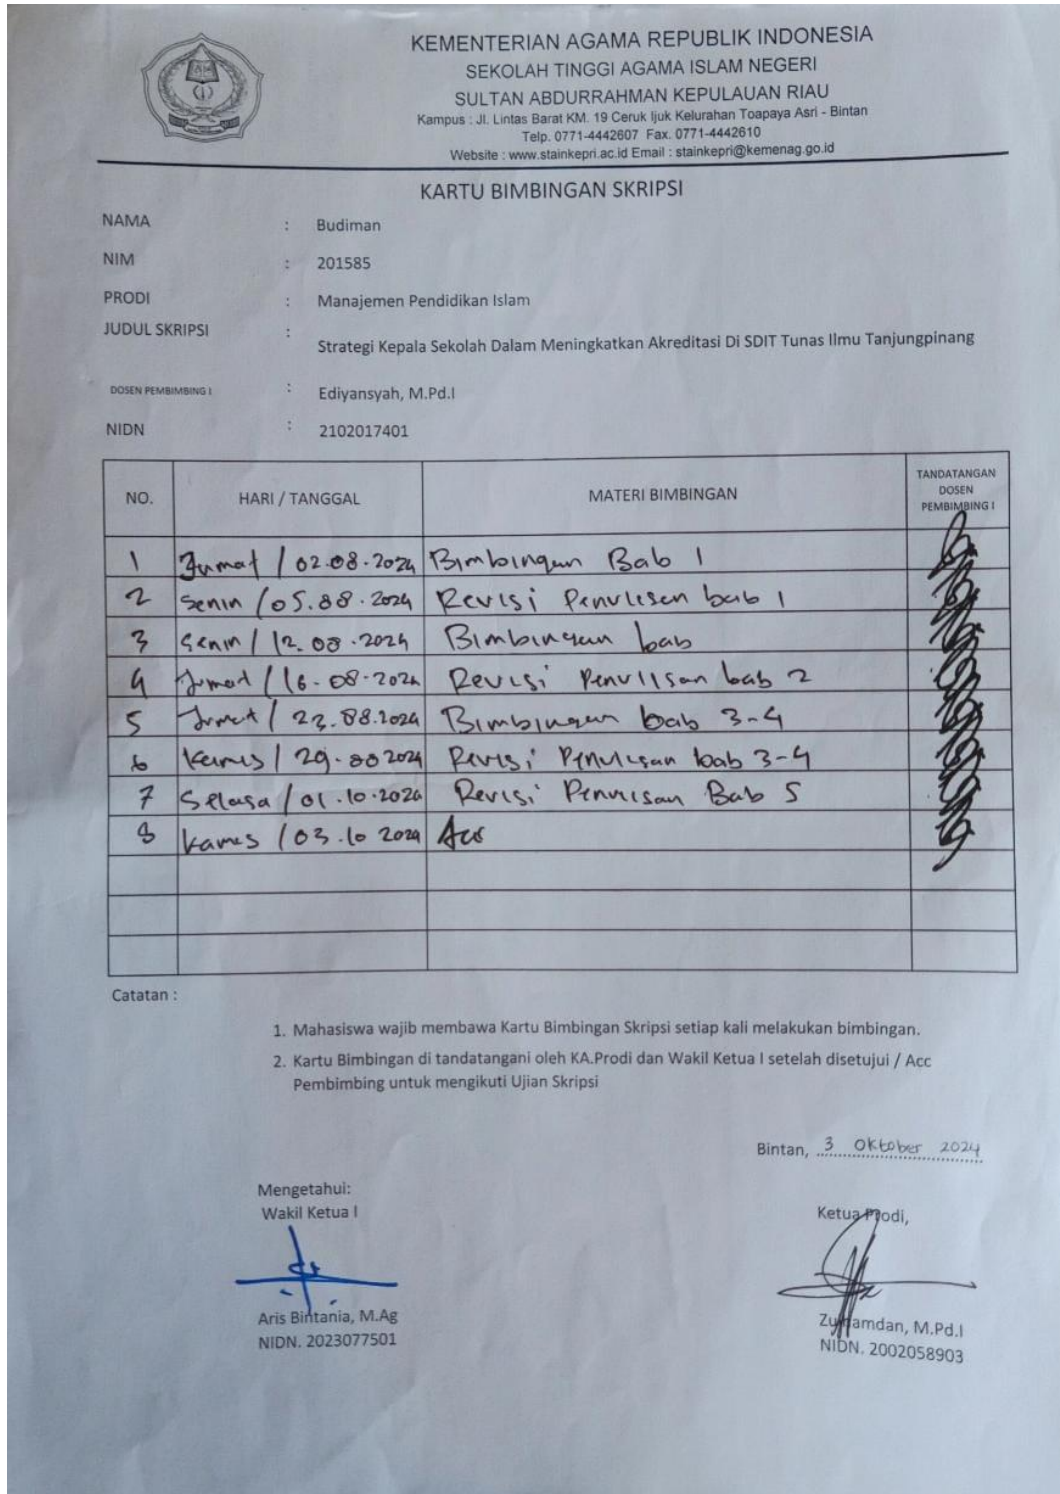 KEMENTERIAN AGAMA REPUBLIK INDONESIA
SEKOLAH TINGGI AGAMA ISLAM NEGERI
SULTAN ABDURRAHMAN KEPULAUAN RIAU
Kampus : Jl. Lintas Barat KM. 19 Ceruk Ijuk Kelurahan Toapaya Asri - Bintan
Telp. 0771-4442607 Fax. 0771-4442610
Website : www.stainkepri.ac.id Email : stainkepri@kemenag.go.id
KARTU BIMBINGAN SKRIPSI
NAMA : Budiman
NIM : 201585
PRODI : Manajemen Pendidikan Islam
JUDUL SKRIPSI : Strategi Kepala Sekolah Dalam Meningkatkan Akreditasi Di SDIT Tunas Ilmu Tanjungpinang
DOSEN PEMBIMBING I : Ediyansyah, M.Pd.I
NIDN : 2102017401
NO. HARI / TANGGAL MATERI BIMBINGAN TANDATANGAN DOSEN PEMBIMBING I
1 Jumat / 02.08.2024 Bimbingan Bab 1
2 Senin / 05.08.2024 Revisi Penulisan bab 1
3 Senin / 12.08.2024 Bimbingan bab
4 Jumat / 16-08-2024 Revisi Penulisan bab 2
5 Jumat / 23.08.2024 Bimbingan bab 3-4
6 Kamis / 29-08 2024 Revisi Penulisan bab 3-4
7 Selasa / 01.10.2024 Revisi Penulisan Bab 5
8 Kamis / 03.10 2024 Acc
Catatan :
1. Mahasiswa wajib membawa Kartu Bimbingan Skripsi setiap kali melakukan bimbingan.
2. Kartu Bimbingan di tandatangani oleh KA.Prodi dan Wakil Ketua I setelah disetujui / Acc
Pembimbing untuk mengikuti Ujian Skripsi
Bintan, 3 Oktober 2024
Mengetahui:
Wakil Ketua I
Ketua Prodi,
Aris Bintania, M.Ag
NIDN. 2023077501
M.Pd.I
NIDN. 2002058903